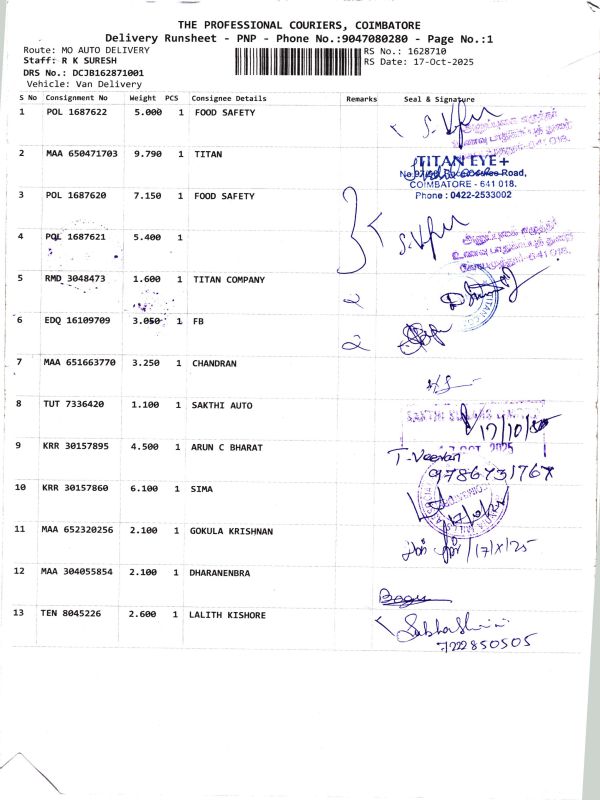 THE PROFESSIONAL COURIERS, COIMBATORE
Delivery Runsheet - PNP - Phone No.:9047080280 - Page No.:1
Route: MO AUTO DELIVERY RS No.: 1628710
Staff: R K SURESH RS Date: 17-Oct-2025
DRS No.: DCJB162871001
Vehicle: Van Delivery
S No Consignment No Weight PCS Consignee Details Remarks Seal & Signature
1 POL 1687622 5.000 1 FOOD SAFETY
2 MAA 650471703 9.790 1 TITAN
TITAN EYE+
Road,
COIMBATORE - 641 018.
Phone : 0422-2533002
3 POL 1687620 7.150 1 FOOD SAFETY
4 POL 1687621 5.400 1
5 RMD 3048473 1.600 1 TITAN COMPANY
6 EDQ 16109709 3.050 1 FB
7 MAA 651663770 3.250 1 CHANDRAN
8 TUT 7336420 1.100 1 SAKTHI AUTO
17/10/
OCT 2025
9 KRR 30157895 4.500 1 ARUN C BHARAT
T. Veeran
9786731767
10 KRR 30157860 6.100 1 SIMA
11 MAA 652320256 2.100 1 GOKULA KRISHNAN
17/X/25
12 MAA 304055854 2.100 1 DHARANENBRA
13 TEN 8045226 2.600 1 LALITH KISHORE